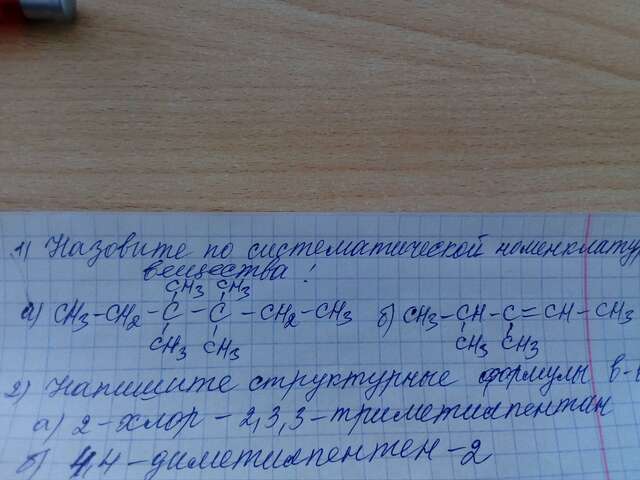 1) Назовите по систематической номенклатур
вещества:
CH3 CH3
а) CH3-CH2-C-C-CH2-CH3 б) CH3-CH-C=CH-CH3
CH3 CH3 CH3 CH3
2) Напишите структурные формулы в-в
а) 2-хлор-2,3,3-триметилпентан
б) 4,4-диметилпентен-2